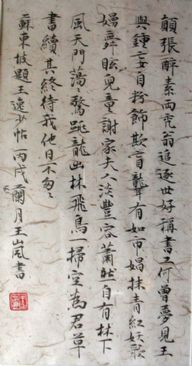 顛張醉素兩禿翁追逐世好稱書工何曾夢見王
與鍾妄自粉飾欺盲聾有如市娼抹青紅妖歌
嫚舞眩兒童謝家夫人淡豐容蕭然自有林下
風天門蕩蕩驚跳龍出林飛鳥一掃空為君草
書續其終待我他日不匆匆
蘇東坡題王逸少帖 丙戌蘭月王嵐書